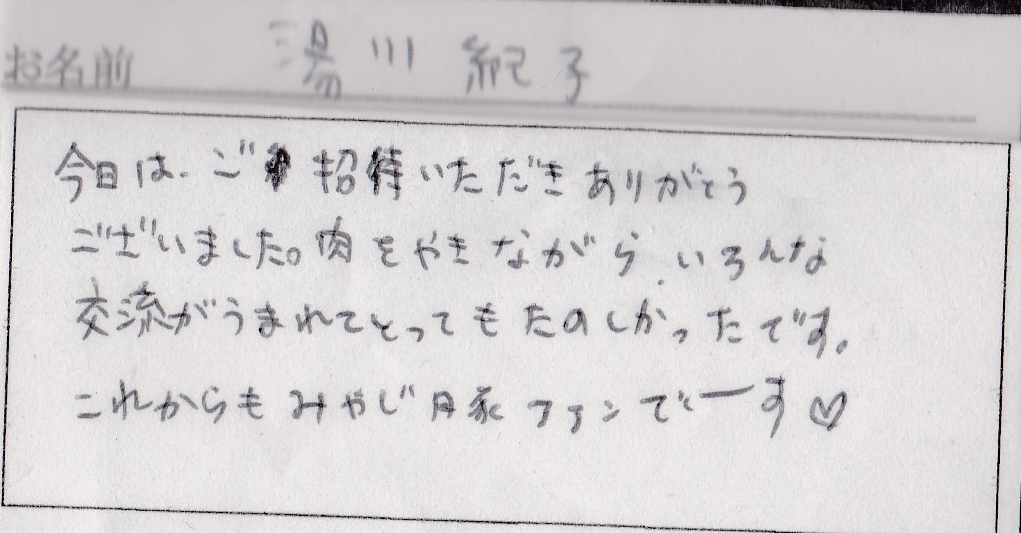 お名前 湯川 紀子
今日は、ご招待いただきありがとう
ございました。肉をやきながら、いろんな
交流がうまれてとってもたのしかったです。
これからもみやじ豚ファンでーす♡